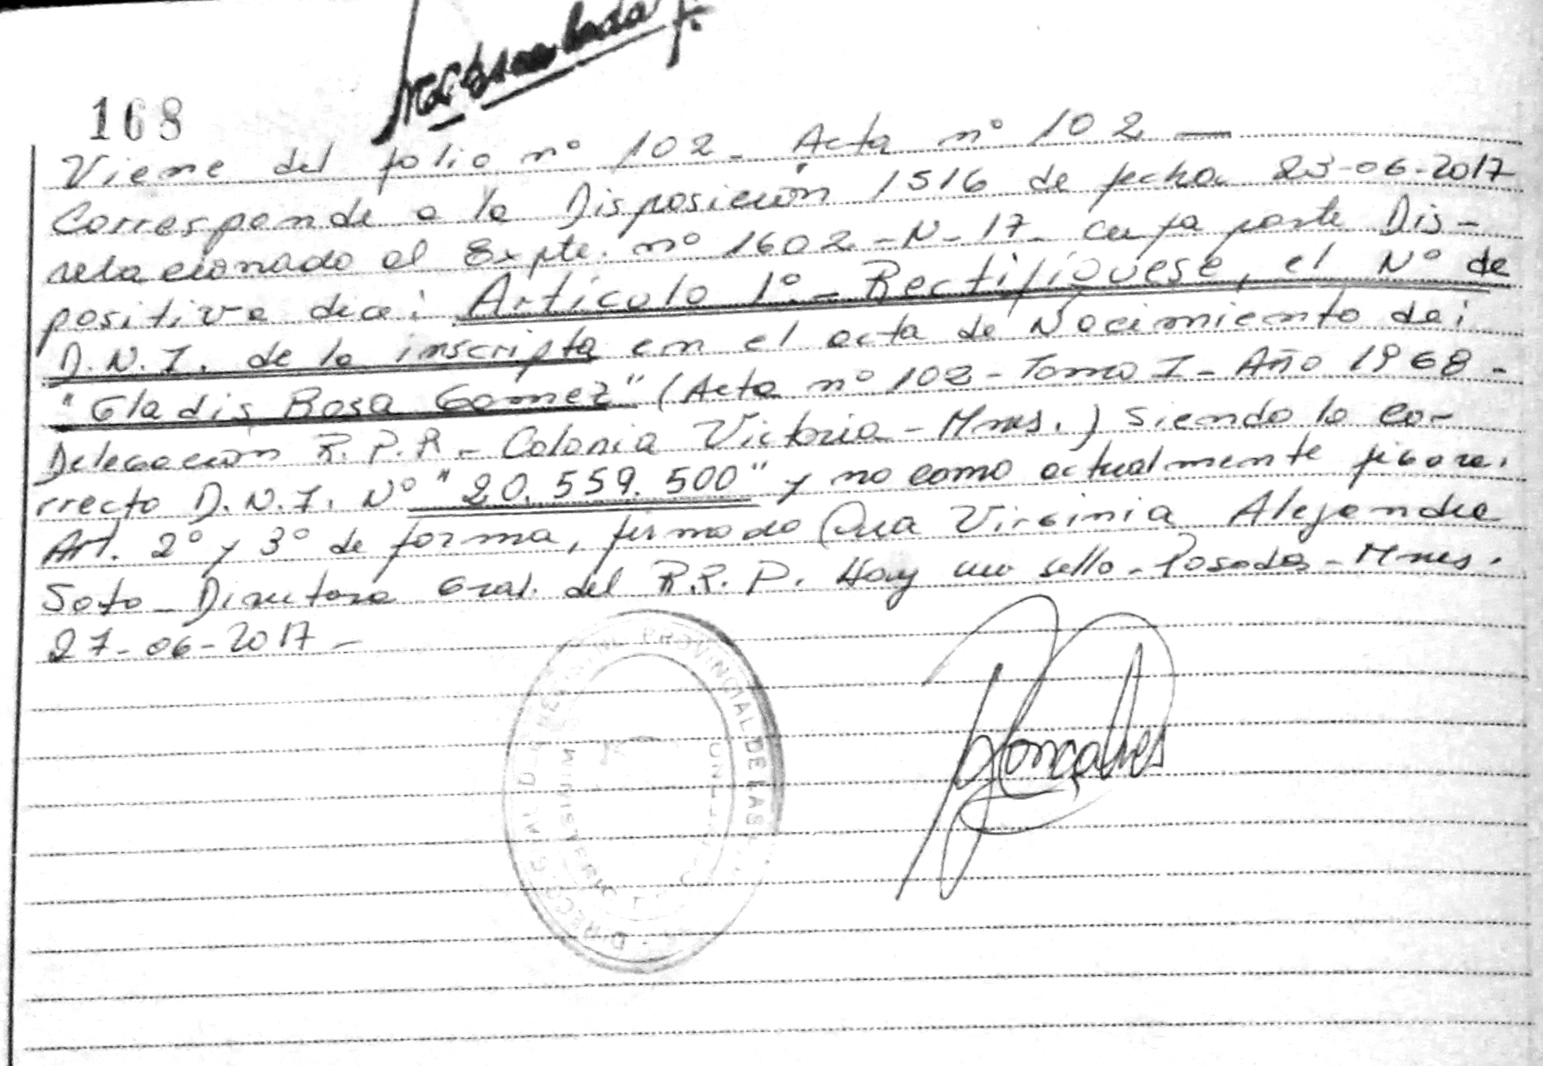 168
Viene del folio nº 102 - Acta nº 102 —
Corresponde a la Disposición 1516 de fecha 23-06-2017
relacionado al Expte. nº 1602-N-17- cuya parte Dis-
positiva dice: Artículo 1º- Rectifíquese, el Nº de
D.N.I. de la inscripta en el acta de Nacimiento de:
"Gladis Rosa Gomez" (Acta nº 102 - Tomo I - Año 1968 -
Delegación R.P.P - Colonia Victoria - Mnes.) siendo lo co-
rrecto D.N.I. Nº "20.559.500" y no como actualmente figura.
Art. 2º y 3º de forma, firmado Dra Virginia Alejandra
Soto - Directora Gral. del R.R.P. Hay un sello - Posadas - Mnes.
27-06-2017 -
PROVINCIAL DE LAS
MINISTERIO
Goncalves